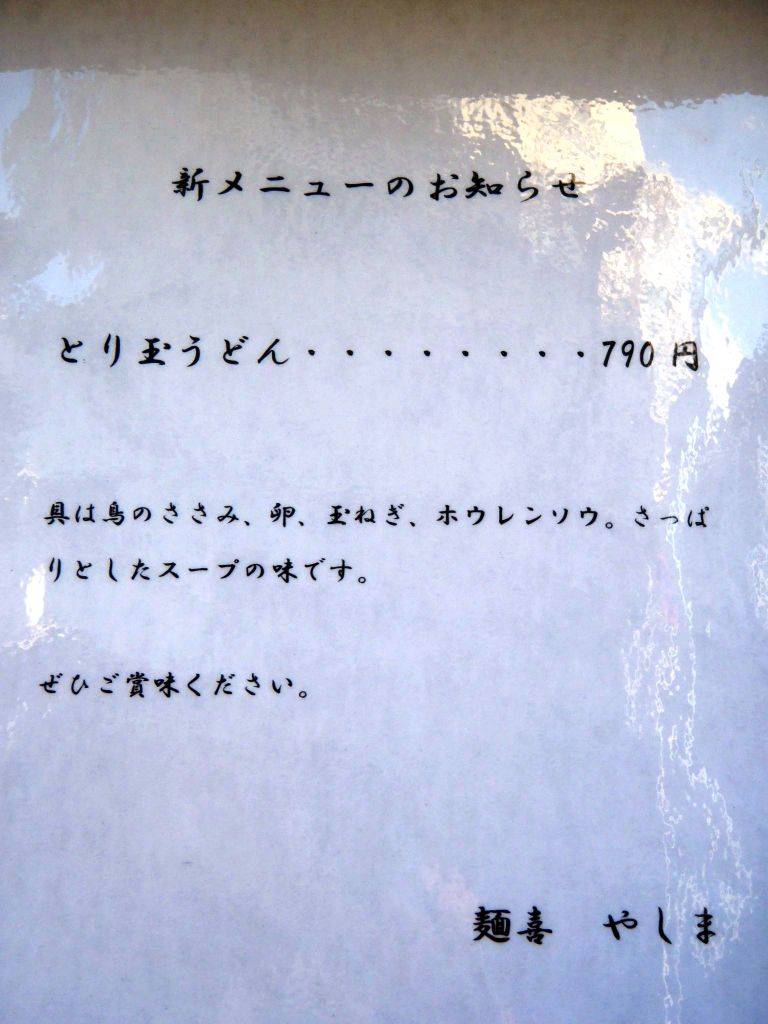 新メニューのお知らせ
とり玉うどん・・・・・・・・790円
具は鳥のささみ、卵、玉ねぎ、ホウレンソウ。さっぱ
りとしたスープの味です。
ぜひご賞味ください。
麺喜　やしま